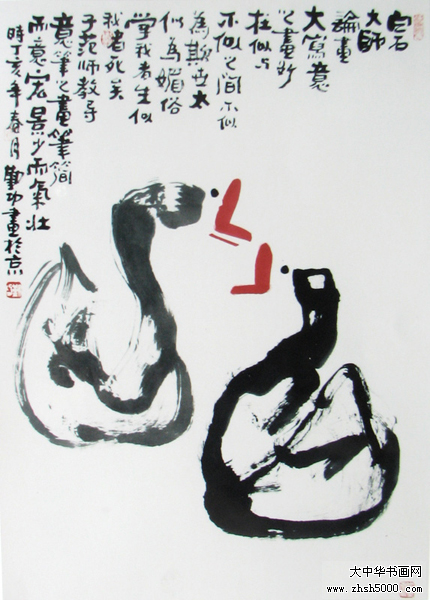 白石
大师
論畫
大寫意
之畫妙
在似与
不似之间不似
為欺世太
似為媚俗
学我者生似
我者死关
子范师教导
意筆之畫筆简
而意宏景少而氣壯
時丁亥年春月勤功畫於京
大中华书画网
www.zhsh5000.com